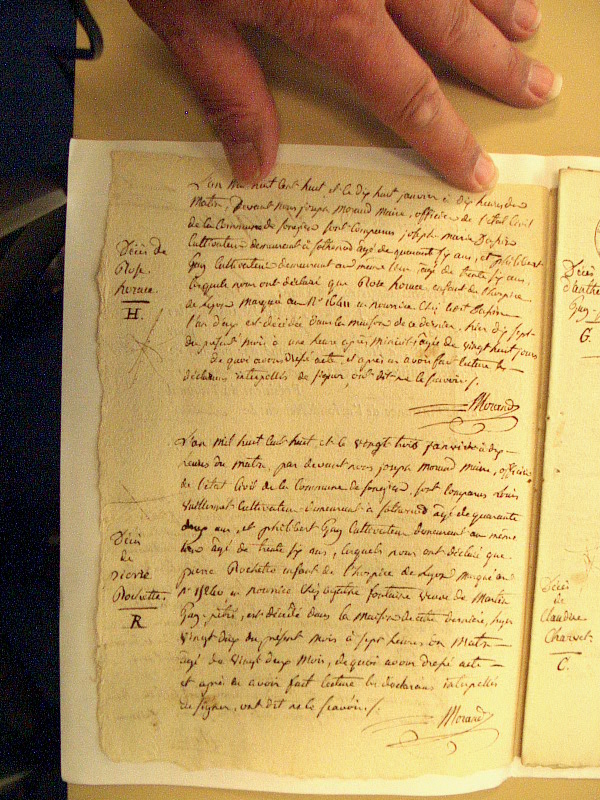 L'an mil huit cent huit et le dix huit janvier à dix heures du
matin, devant nous joseph Morand Maire, officier de l'état Civil
de la Commune de sont comparus joseph marie Dupin
Cultivateur demeurant à agé de quarante six ans, et philibert
Guy Cultivateur demeurant au même lieu agé de trente six ans,
lesquels nous ont déclaré que Rose horace enfant de l'hospice
de Lyon marqué au N° en nourrice chez Dupin
l'an deux est décédée dans la maison de ce dernier, hier dix sept
du présent mois à une heure après minuit agée de vingt huit jours
de quoi avons drefsé acte, et après en avoir fait lecture les
déclarans interpellés de signer, ont dit ne le savoir.
Morand
L'an mil huit cent huit et le vingt trois janvier à dix
heures du matin, par devant nous joseph morand maire, officier
de l'état civil de la Commune de sont comparus
Cultivateur demeurant à agé de quarante
deux ans, et philibert Guy Cultivateur demeurant au même
lieu agé de trente six ans, lesquels nous ont déclaré que
pierre Rochette enfant de l'hospice de Lyon marqué au
N° en nourrice chez fontaine veuve de Martin
Guy, est décédé dans la maison de cette dernière, hier
vingt deux du présent mois à sept heures du matin
agé de vingt deux mois, de quoi avons drefsé acte
et après en avoir fait lecture les déclarans interpellés
de signer, ont dit ne le savoir.
Morand
Décès de
Rose
horace
H.
Décès
de
pierre
Rochette.
R
Décès
Guy
G.
Décès
de
Claudine
Charvet
C.